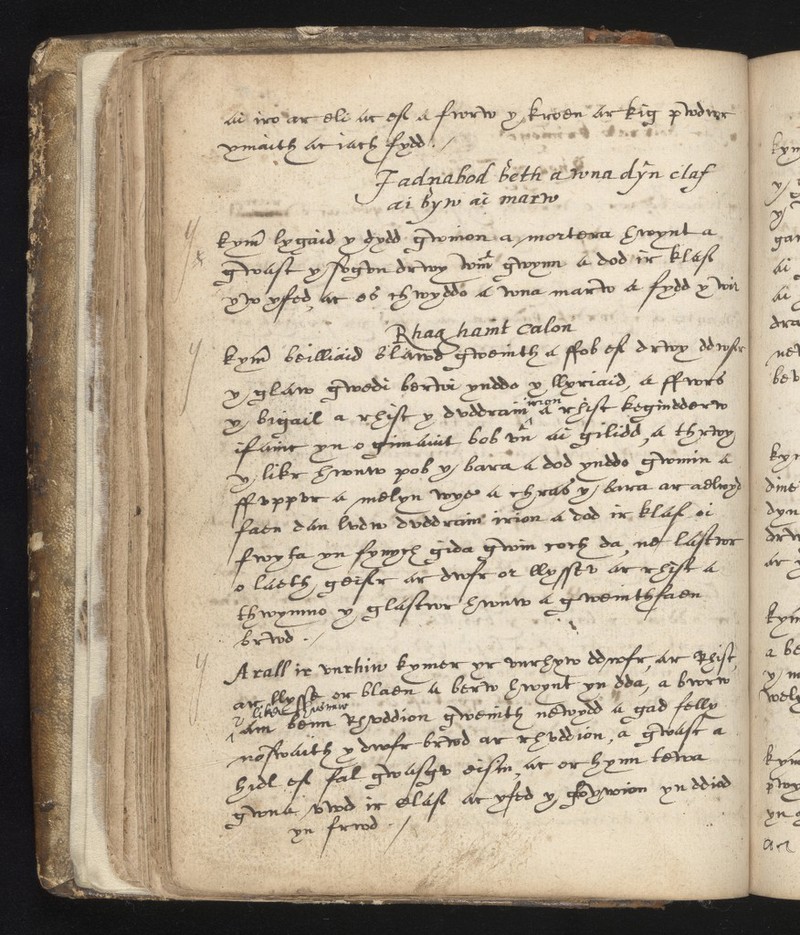 ai iro ar eli ac ef a fwrw y kroen ar kig pwdwr
ymaith ac iach fydd
J adnabod beth a wna dyn claf
ai byw ai marw
kym̃ lygaid y dydd gwnion a mortera hwynt a
gwasc y sygvn drwy win gwynn a dod ir klaf
yw yfed, ac os chwyddo a wna marw a fydd y wir
Rhag haint calon
kym̃ beilliaid blawd gweinith a ffob ef drwy ddwfr
y glaw gwedi berwi ynddo y llyriaid, a ffwrs
y bigail a rhisc y dvddrain irion a rhisc kegindderw
ifainc yn ogimaint bob vn ai gilidd, a thrwy
y likr hwnw pob y bara a dod ynddo gwmin a
ffvppvr a melyn wye a chras y bara ar aelwyd
faen dan lvdw dvddrain irion a dod ir klaf oi
fwyta yn fynych gida gwin coch da, ne lastwr
o laeth geifr ar dwfr or llyssev ar rhisc a
thwymno y glastwr hwnw a gweinithfaen
brwd
Arall ir vnrhiw kymer yr vnrhyw ddwfr, ar Rhisc,
ar llysse or blaen a berw hwynt yn dda, a bwrw
y likr hwnnw
am benn Rhvddion gweinith newydd a gad felly
noswaith y dwfr brwd ar rhvddion, a gwasc a
hidl ef fal gwasgv eisin, ac or hynn tewa
gwna vwd ir claf ac yfed y gloywion yn ddiod
yn frwd